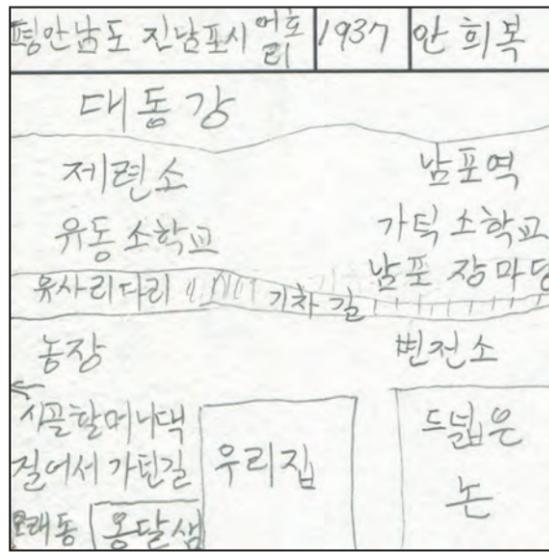 평안남도 진남포시 어호리 1937 안희복
대동강
제련소 남포역
유동 소학교 가덕 소학교
유사리다리 기차길 남포 장마당
농장 변전소
시골할머니댁
걸어서 가던길
우리집
드넓은
논
모래동 옹달샘